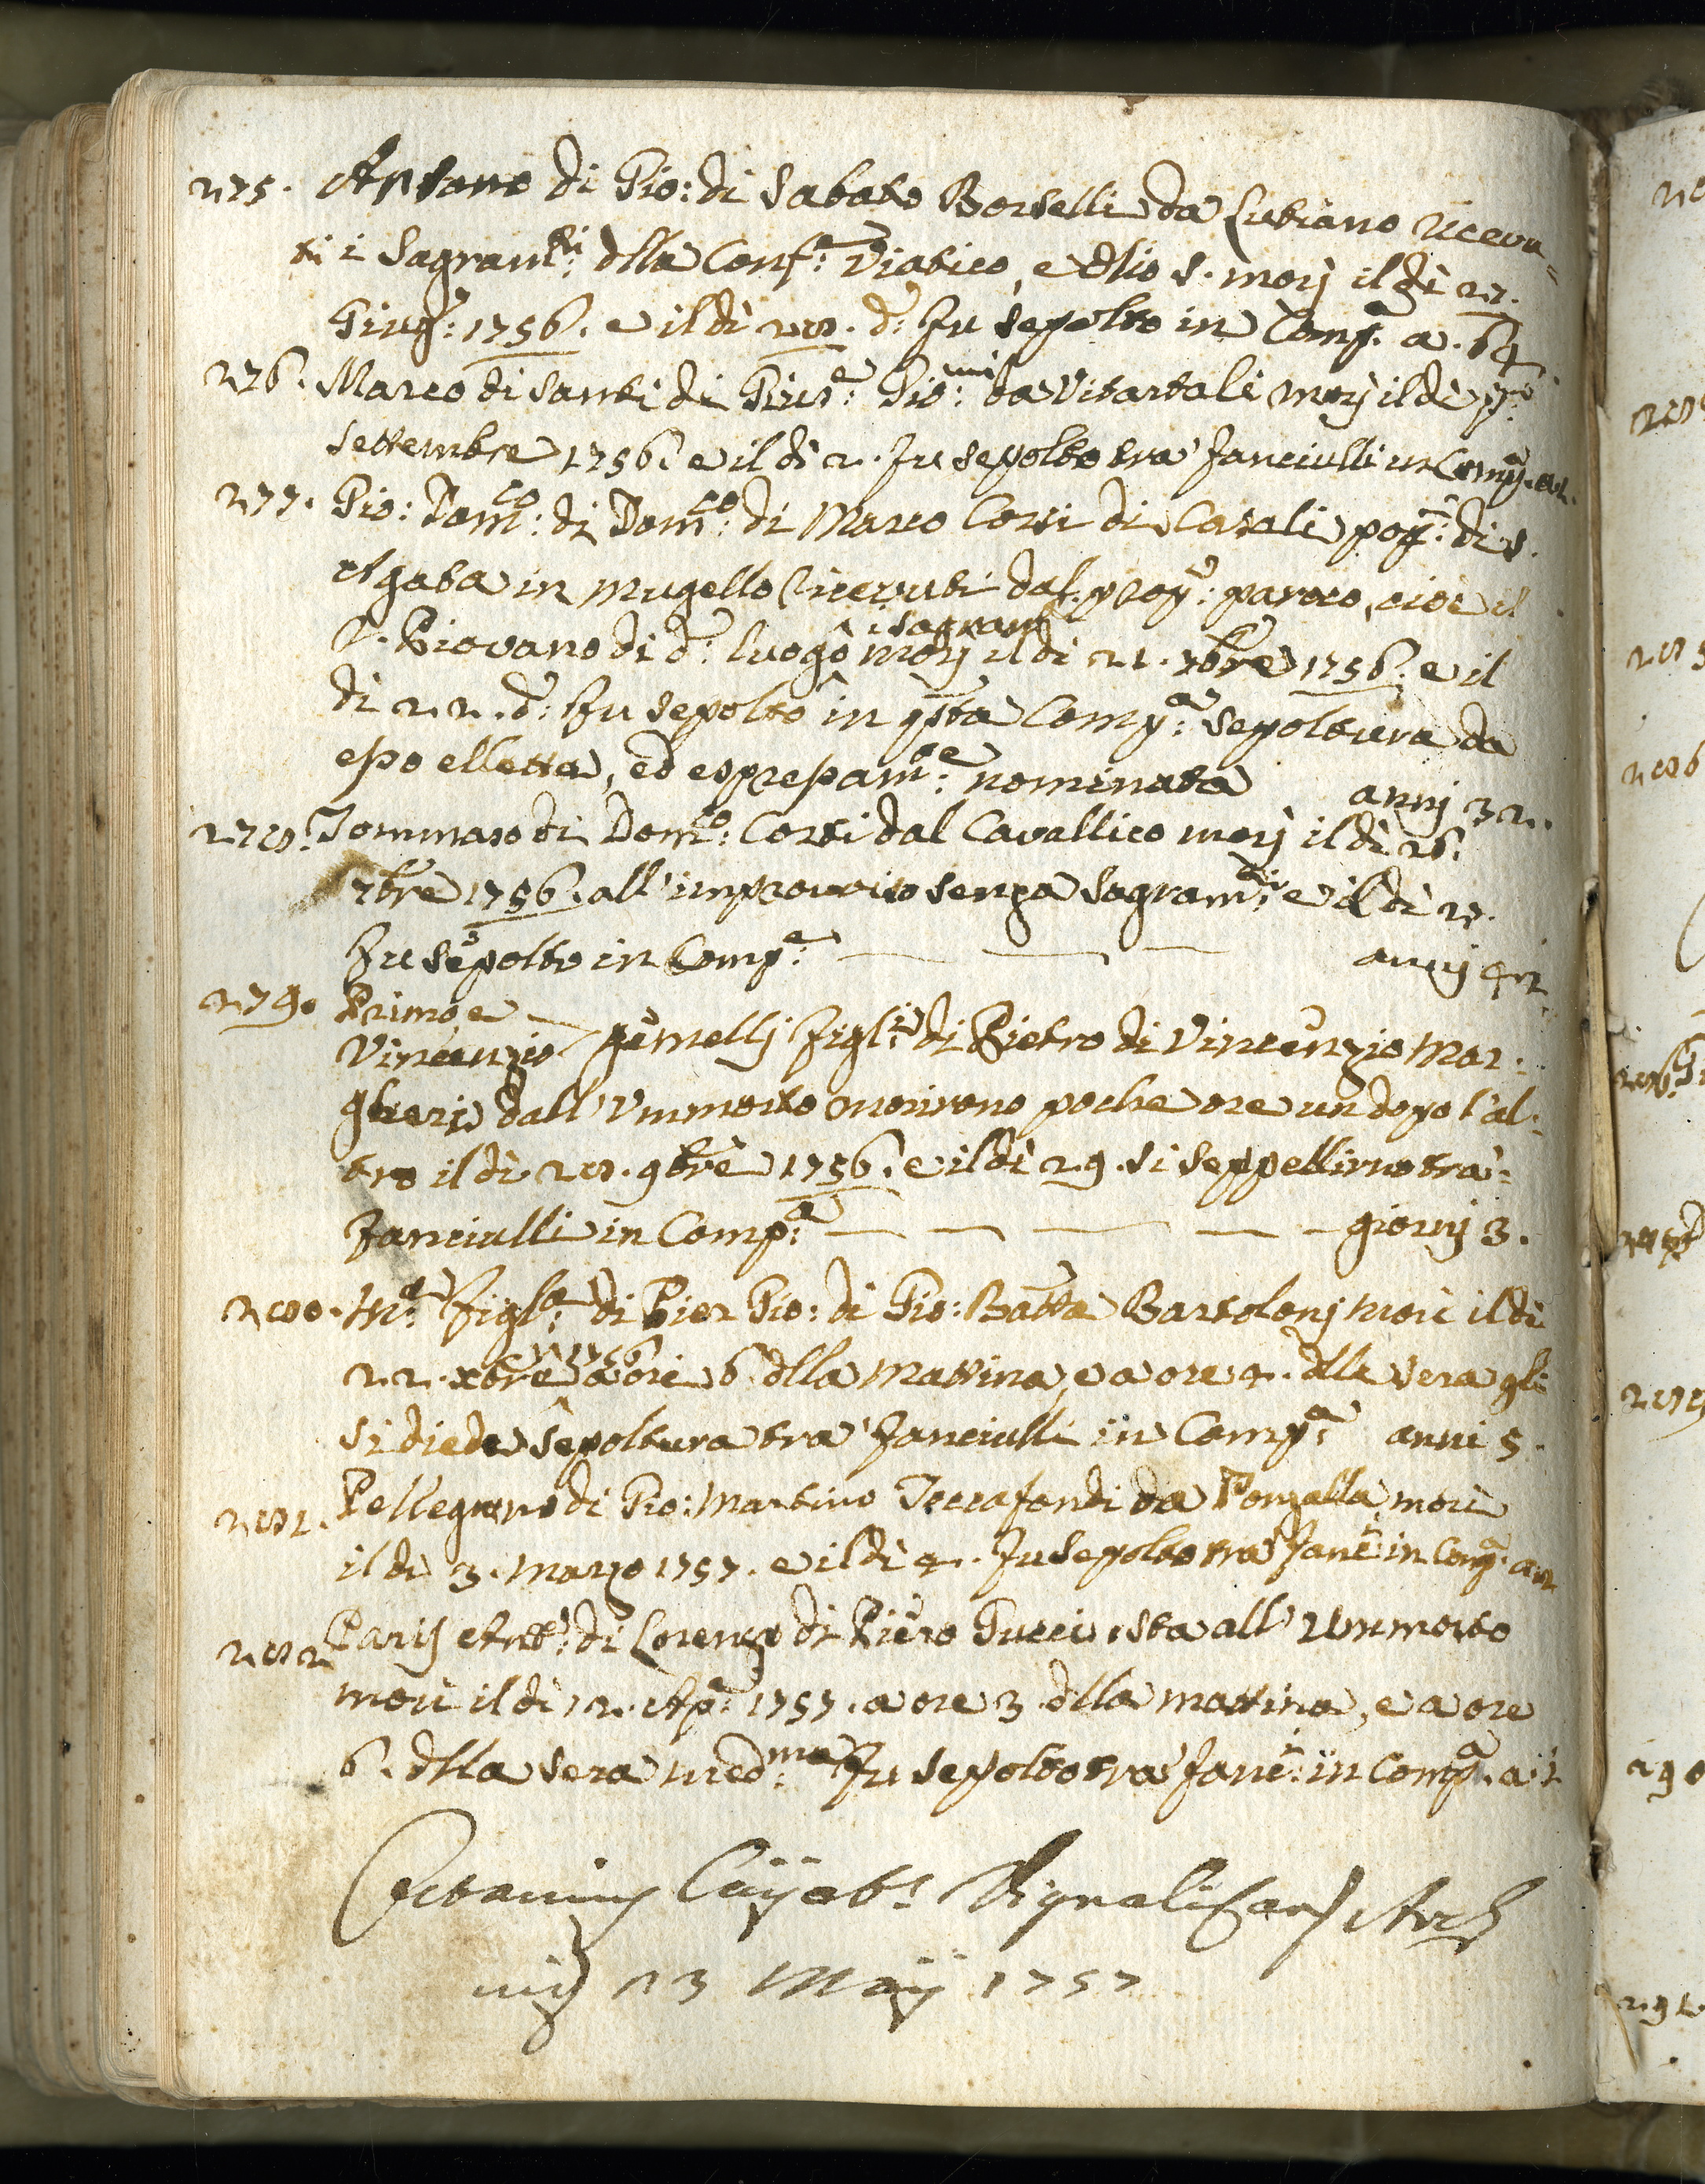 275. Antonio di Gio: di Sabato Borselli da Lubiano riceuu=
ti i Sagram:ti dlla Conf:e Viatico, e Olio S. morj il dì 27.
Giug:o 1756. e il dì 28. d:o fu sepolto in Comp:a a. 64
276. Marco di Santi di Gius:e Gio:nni da Vitartali morj il dì p:o
Settembre 1756. e il dì 2. fu sepolto tra' fanciulli in Comp:a a.
277. Gio: Dom:co di Dom:co di Marco Corsi di Casali pop:o di S.
Agata in Mugello riceuuti dal prop:o paroco, cioè il
S. Piovano di d:o luogo i sagram:ti morj il dì 21. 7bre 1756. e il
dì 22. d:o fu sepolto in qsta Comp:a sepoltura da
esso elletta, ed espressam:te nominata annj 32.
278. Tommaso di Dom:co Corsi dal Cavallico morj il dì 26.
7bre 1756. all' improuviso senza Sagram:ti e il dì 27.
fu sepolto in Comp:a — — — annj
279. Primo, e —
Vincenzio gemellj figl:i di Pietro di Vincenzio Mar:
gheri dall' Ummorto morirono poche ore un dopo l'al:
tro il dì 28. 9bre 1756. e il dì 29. si seppellirno tra'=
fanciulli in Comp:a — — — — giornj 3.
280. M:a figl:a di Pier Gio: di Gio: Batta Bartolonj morì il dì
22. xbre 1756 a ore 6 dlla mattina, e a ore 4. dlla sera gli
si diede sepoltura tra' fanciulli in Comp:a anni 5.
281. Pellegrino di Gio: Martino Terrafondi da Ponzalla, morì
il dì 3. Marzo 1757. e il dì 4. fu sepolto tra' fanc:i in Comp:a
282. Parij Ant:o di Lorenzo di Piero Gucci, sta all' Ummorto
morì il dì 12. Ap:e 1757. a ore 3 dlla mattina, e a ore
6. dlla sera med:ma fu sepolto tra' fanc:i in Comp:a a.
13 Maij 1757